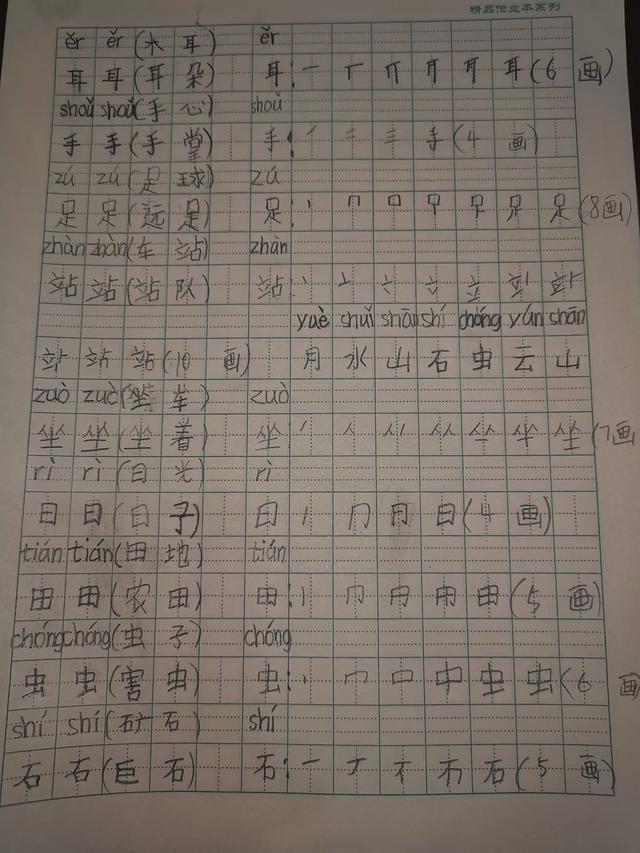 精品作业本系列
ěr ěr (木 耳) ěr
耳 耳 (耳 朵) 耳: (6 画)
shǒu shǒu (手 心) shǒu
手 手 (手 掌) 手: 手 (4 画)
zú zú (足 球) zú
足 足 (远 足) 足: 足 (8画)
zhàn zhàn (车 站) zhàn
站 站 (站 队) 站:
yuè shuǐ shān shí chóng yún shān
站 站 (10 画) 月 水 山 石 虫 云 山
zuò zuò (坐 车) zuò
坐 坐 (坐 着) 坐: 坐 (7画
rì rì (日 光) rì
日 日 (日 子) 日: 日 (4 画)
tián tián (田 地) tián
田 田 (农 田) 田: 田 (5 画)
chóng chóng (虫 子) chóng
虫 虫 (害 虫) 虫: 虫 (6 画
shí shí (矿 石) shí
石 石 (巨 石) 石: 石 (5 画)